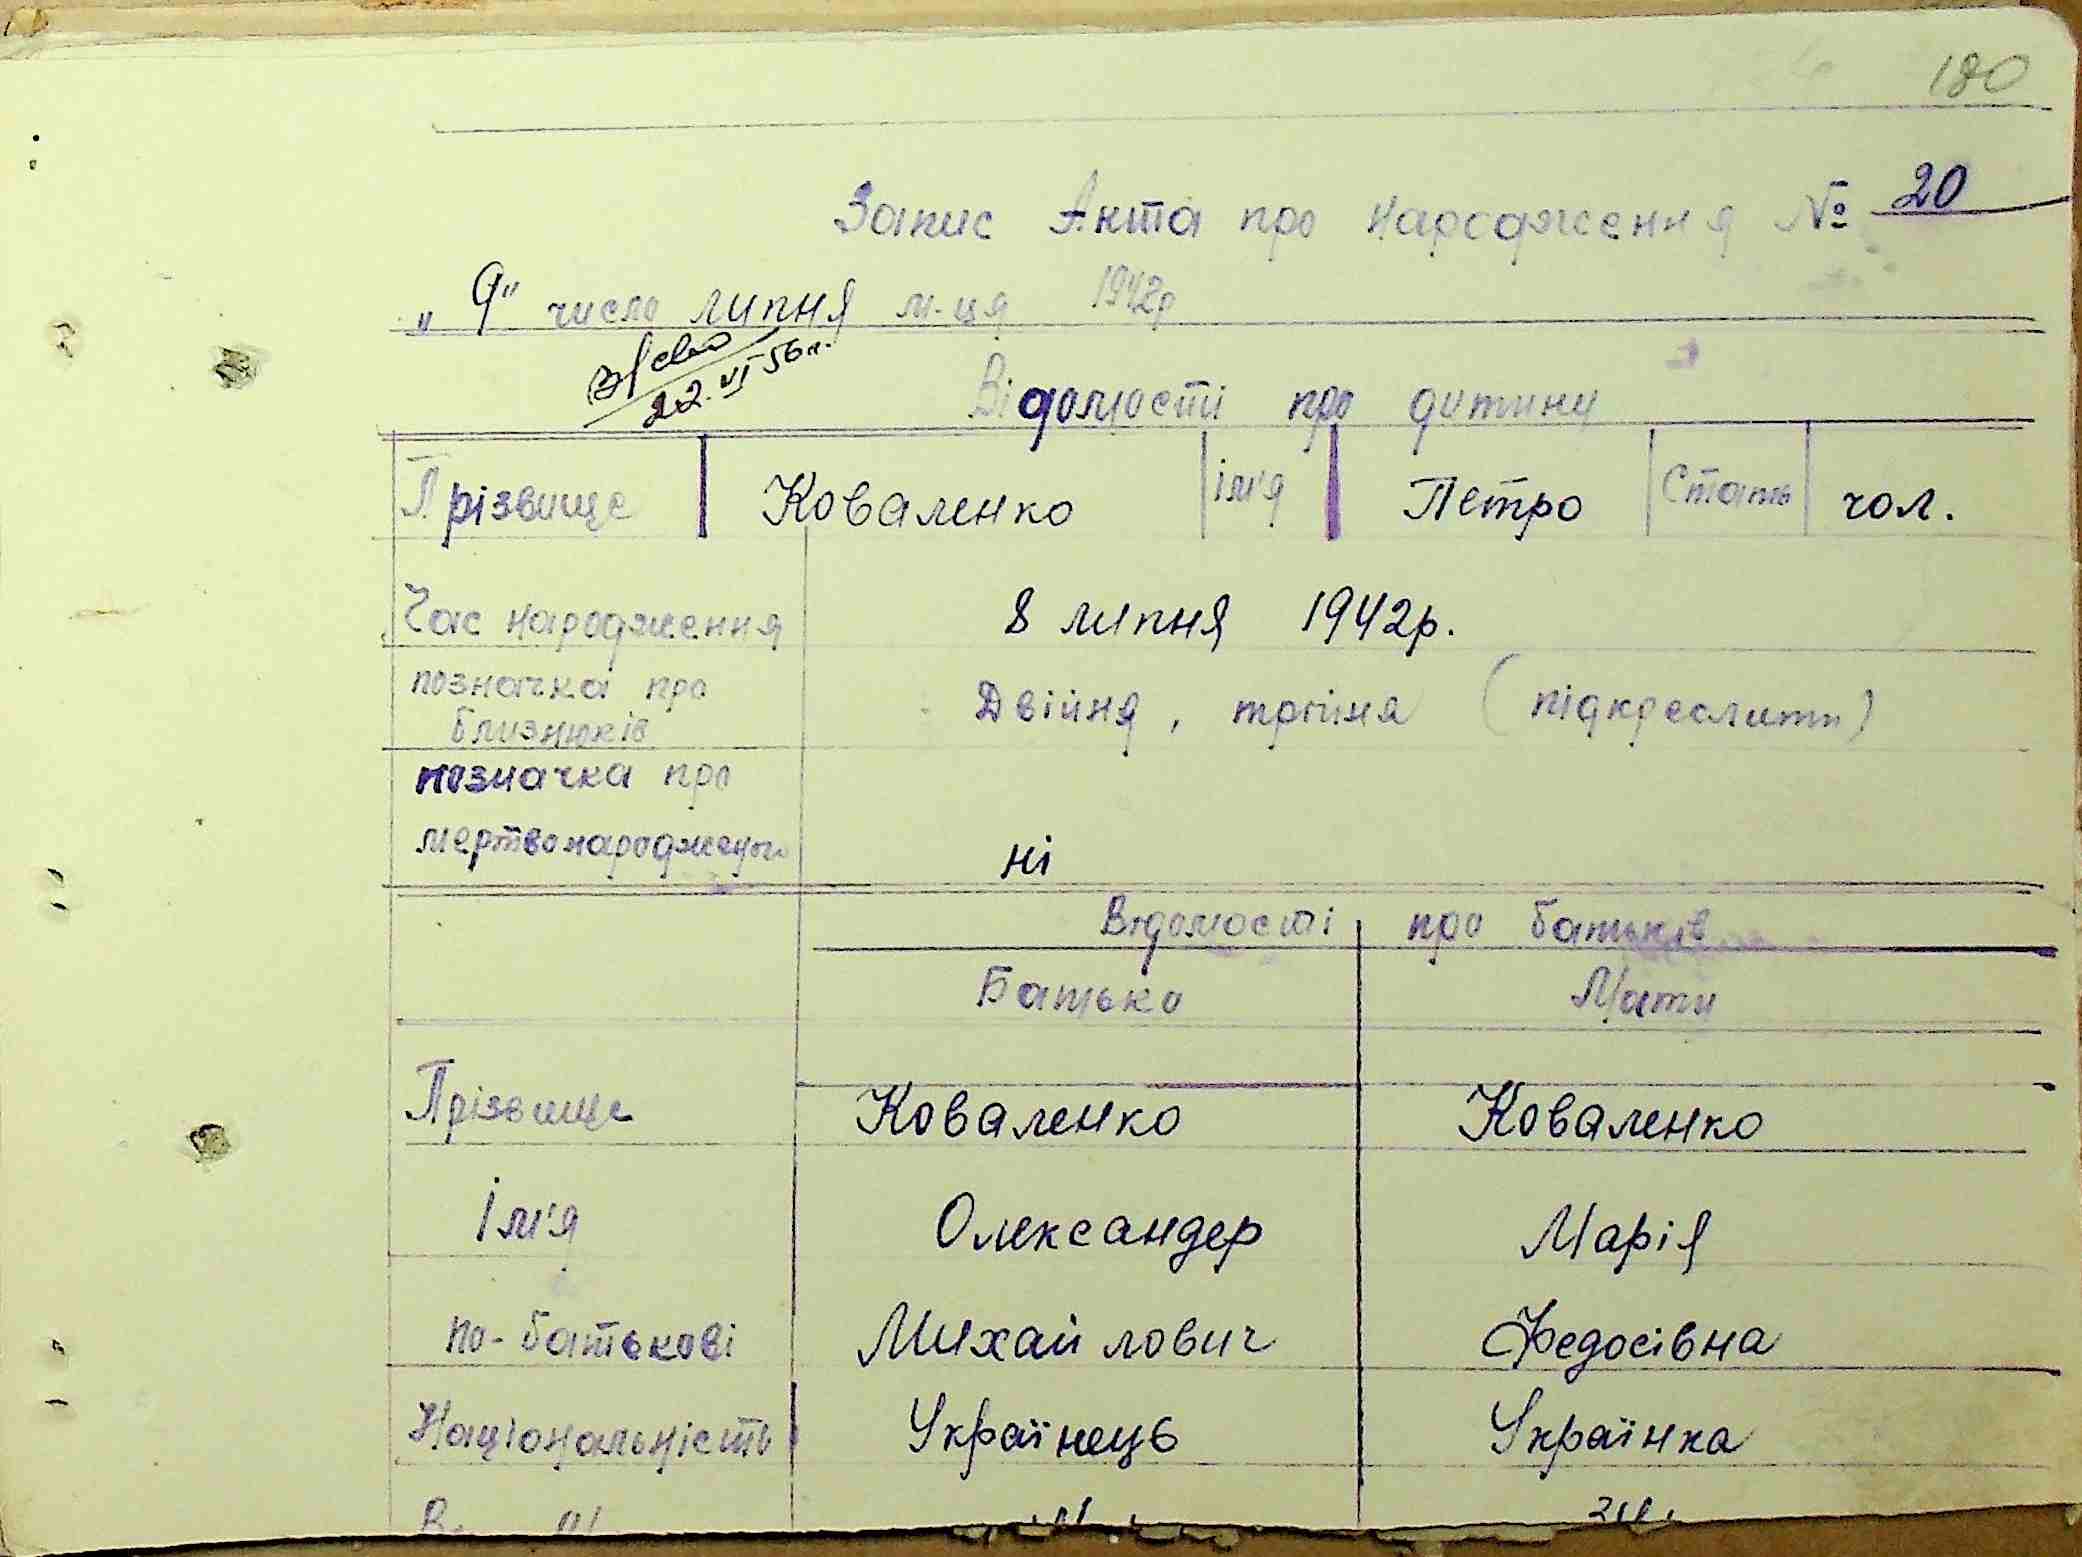 180
Запис Акта про народження № 20
„9" число липня м-ця 1942р
22.VI 56 г.
Відомості про дитину
Прізвище Коваленко ім'я Петро Стать чол.
Час народження 8 липня 1942р.
позначка про близнюків Двійня, тройня (підкреслити)
позначка про
мертвонародженого ні
Відомості про батьків
Батько Мати
Прізвище Коваленко Коваленко
Ім'я Олександер Марія
по-батькові Михайлович Федосівна
Національність Українець Українка